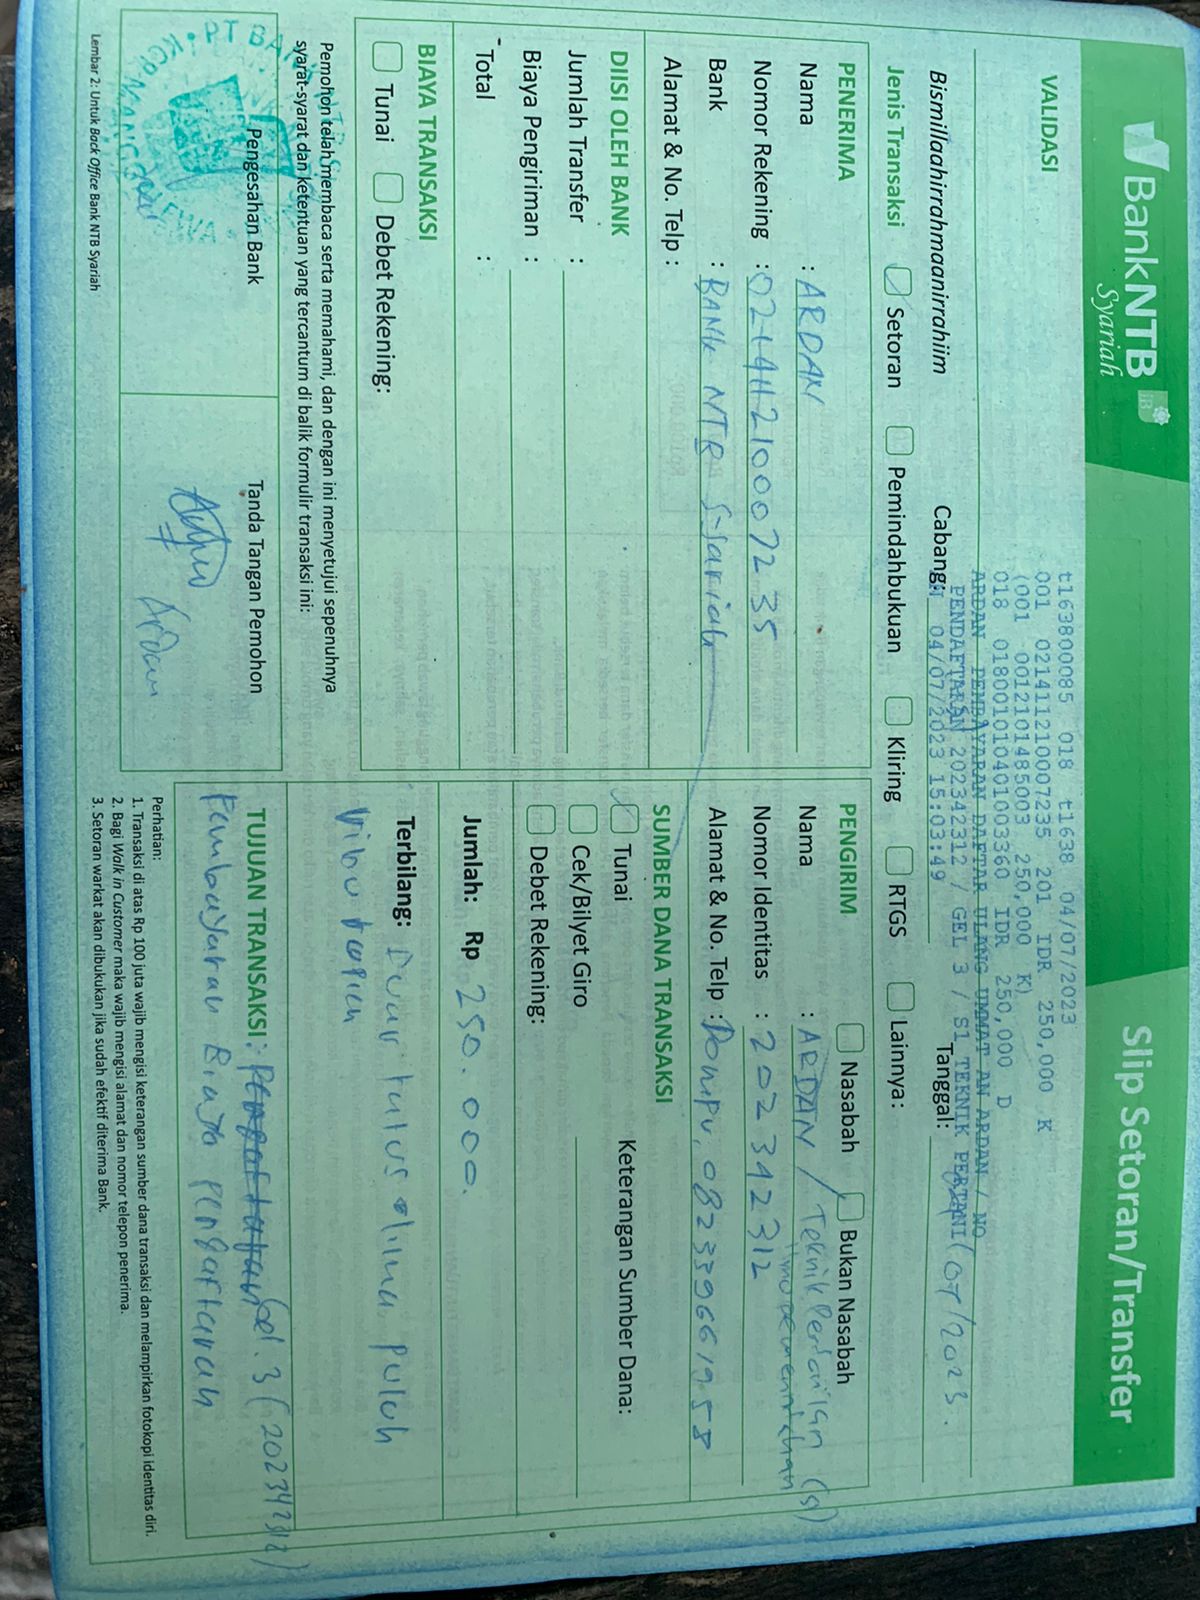 BankNTB
Syariah
Slip Setoran/Transfer
VALIDASI
t163800085 018 t1638 04/07/2023
001 0214112100007235 201 IDR 250,000 K
(001 0012101485003 250,000 K)
018 0180010104010003360 IDR 250,000 D
ARDAN PEMBAYARAN DAFTAR ULANG UMMAT AN ARDAN / NO
PENDAFTARAN 202342312 / GEL 3 / S1 TEKNIK PERTANI
04/07/2023 15:03:49
Bismillaahirrahmaanirrahiim
Cabang:
Tanggal: /07/2023.
Jenis Transaksi Setoran Pemindahbukuan Kliring RTGS Lainnya:
PENERIMA
Nama : ARDAN
Nomor Rekening : 0214112100072 35
Bank : BANK NTB Syariah
Alamat & No. Telp :
PENGIRIM Nasabah Bukan Nasabah
Nama : ARDAN / Teknik Pertanian (S1)
Nomor Identitas : 202342312
Alamat & No. Telp : Dompu, 082339661958
DIISI OLEH BANK
Jumlah Transfer :
Biaya Pengiriman :
Total :
SUMBER DANA TRANSAKSI
Tunai Keterangan Sumber Dana:
Cek/Bilyet Giro
Debet Rekening:
BIAYA TRANSAKSI
Tunai Debet Rekening:
Jumlah: Rp 250.000.
Terbilang: Duar ratus lima puluh
ribu rupiah
Pemohon telah membaca serta memahami, dan dengan ini menyetujui sepenuhnya
syarat-syarat dan ketentuan yang tercantum di balik formulir transaksi ini:
Pengesahan Bank
PT BA
Tanda Tangan Pemohon
Ardan
TUJUAN TRANSAKSI: Gel. 3 (202342312)
Pembayaran Biaya pendaftaran
Perhatian:
1. Transaksi di atas Rp 100 juta wajib mengisi keterangan sumber dana transaksi dan melampirkan fotokopi identitas diri.
2. Bagi Walk in Customer maka wajib mengisi alamat dan nomor telepon penerima.
3. Setoran warkat akan dibukukan jika sudah efektif diterima Bank.
Lembar 2: Untuk Back Office Bank NTB Syariah